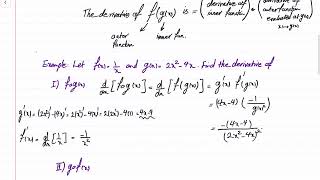 The derivative of f(g(x)) is = (derivative of inner function) • (derivative of outer function evaluated at g(x))
outer function
inner fun.
Example: Let f(x) = 1/x and g(x) = 2x²-4x. Find the derivative of
I) fog(x)
d/dx [fog(x)] = d/dx [f(g(x))] = g'(x) f'(g(x))
g'(x) = (2x²)' - (4x)' = 2(x²)' - 4(x)' = 2(2x) - 4(1) = 4x-4
= (4x-4) (-1/g(x)²)
f'(x) = d/dx [1/x] = -1/x²
= -(4x-4)/(2x²-4x)²
II) gof(x)